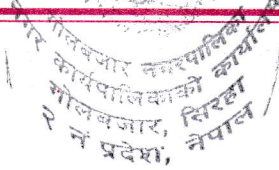 गोलबजार नगरपालिका
नगर कार्यपालिकाको कार्यालय
गोलबजार, सिरहा
२ नं प्रदेश, नेपाल